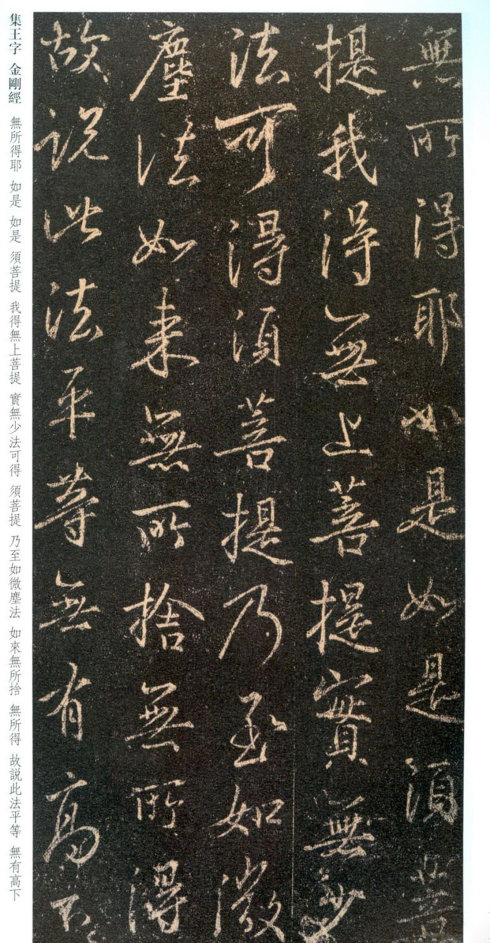 無所得耶如是如是須菩
提我得無上菩提實無少
法可得須菩提乃至如微
塵法如來無所捨無所得
故說此法平等無有高下
集王字 金剛經 無所得耶 如是 如是 須菩提 我得無上菩提 實無少法可得 須菩提 乃至如微塵法 如來無所捨 無所得 故説此法平等 無有高下